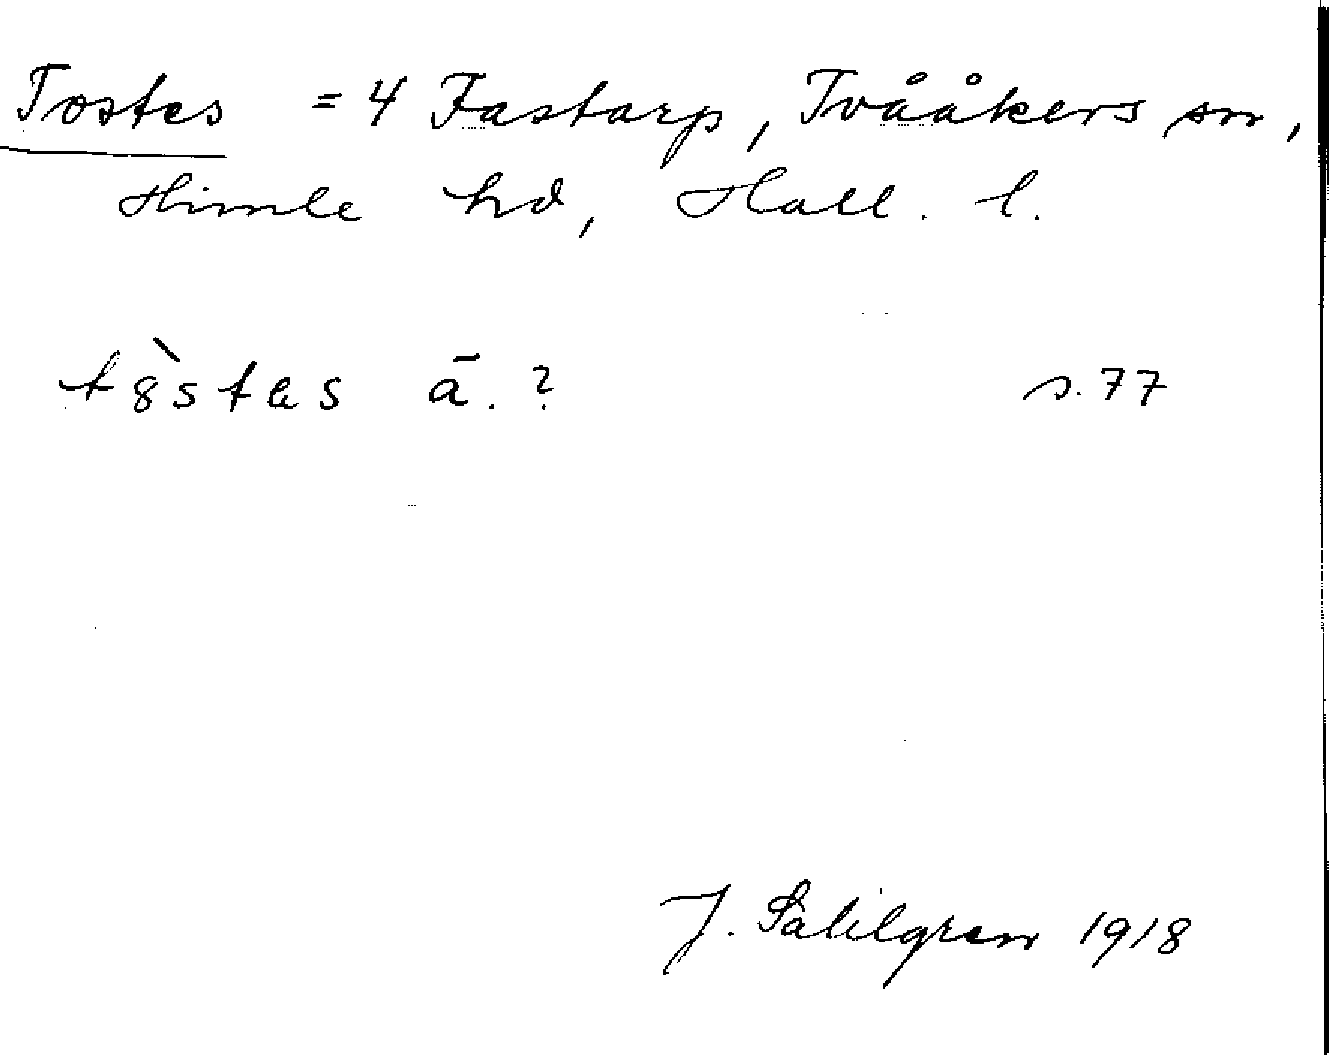 Tostes = 4 Fastarp, Tvååkers sn,
Himle hd, Hall. l.
t8̀stas ā.? s. 77
J. Sahlgren 1918